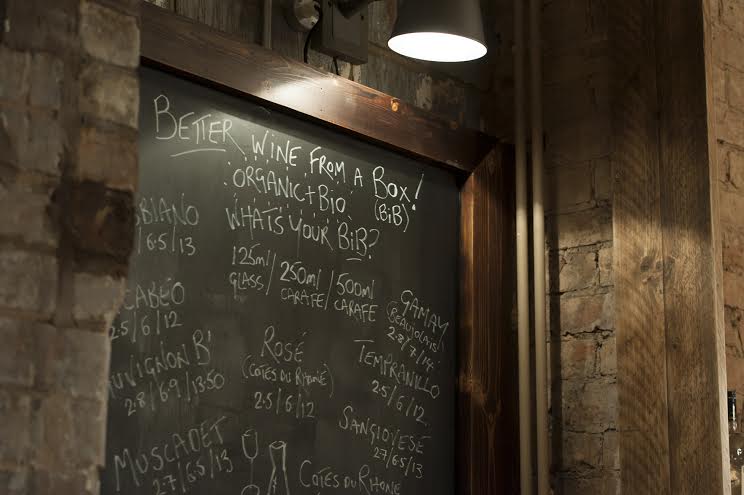 BETTER WINE FROM A BOX!
ORGANIC + BIO (BiB)
WHATS YOUR BiB?
125ml GLASS / 250ml CARAFE / 500ml CARAFE
BIANO
/6.5/13
CABÉO
2.5/6/12
UVIGNON B'
2.8/6.9/13.50
MUSCADET
2.7/6.5/13
ROSÉ
(CÔTES DU RHÔNE)
2.5/6/12
GAMAY
(BEAUJOLAIS)
2.8/7/14
TEMPRANILLO
2.5/6/12
SANGIOVESE
2.7/6.5/13
CÔTES DU RHONE